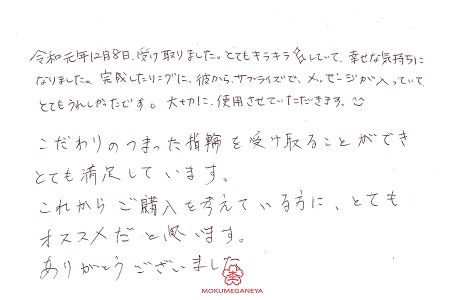 令和元年12月8日、受け取りました。とてもキラキラしていて、幸せな気持ちに
なりました。完成したリングに、彼からサプライズで、メッセージが入っていて、
とてもうれしかったです。大切に、使用させていただきます。
こだわりのつまった指輪を受け取ることができ
とても満足しています。
これからご購入を考えている方に、とても
オススメだと思います。
ありがとうございました
MOKUMEGANEYA